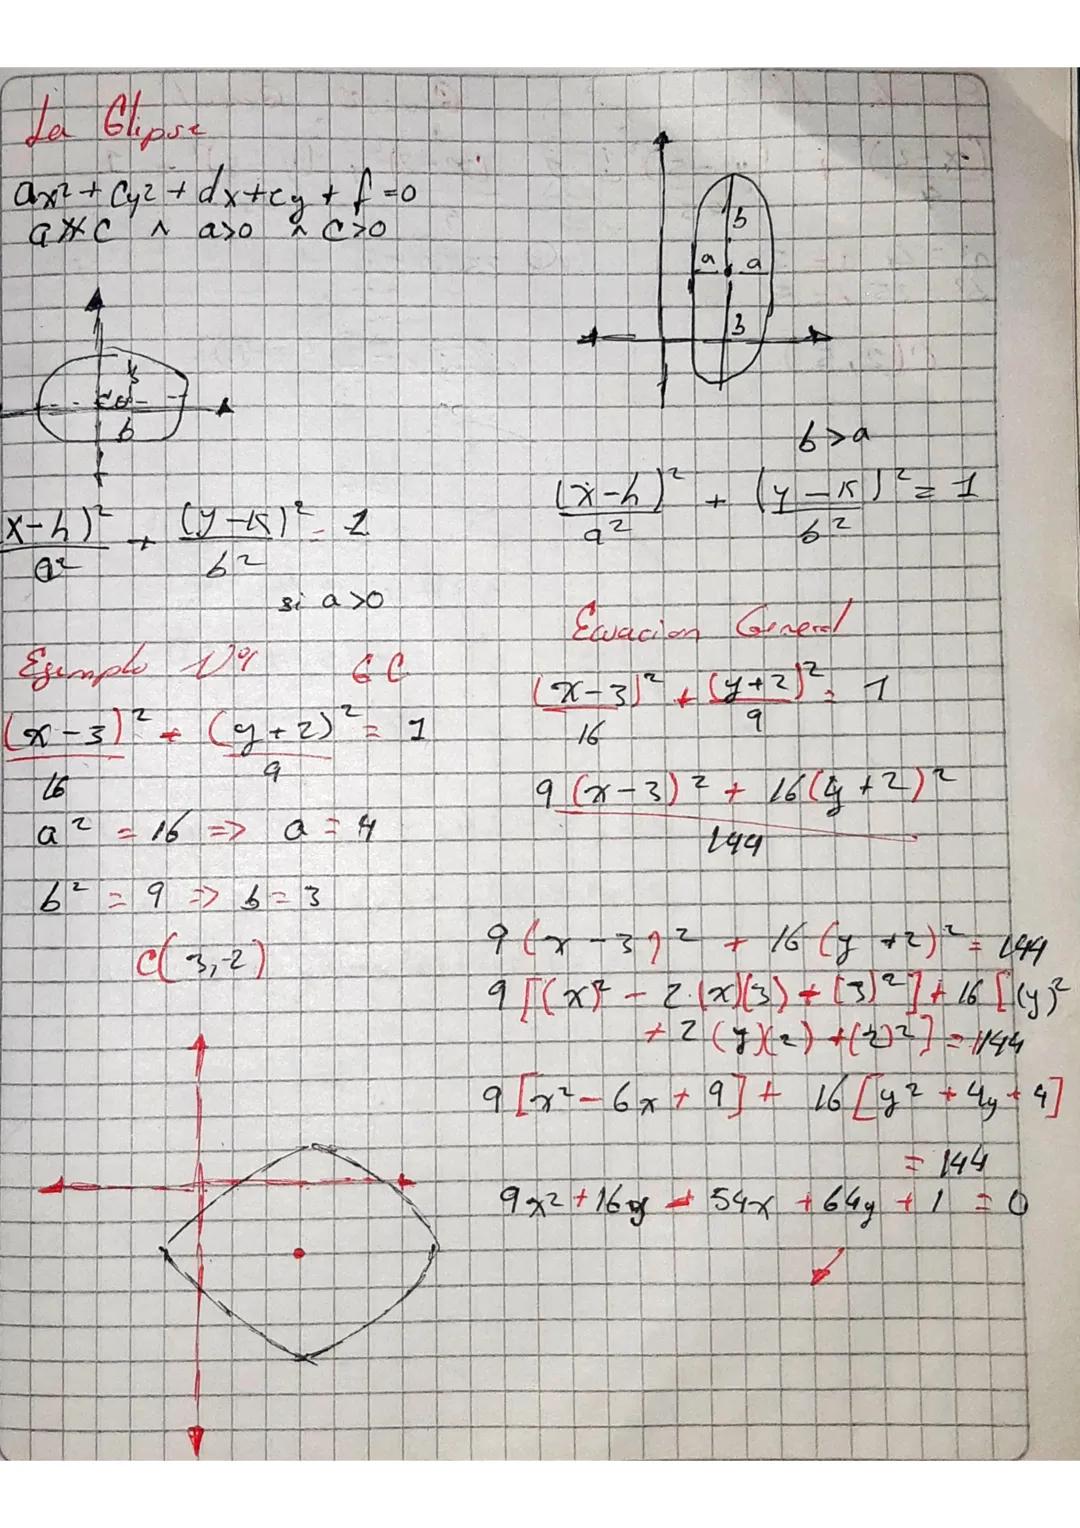 La Elipse
ax² + Cy² + dx + ey + f = 0
a ≠ c ∧ a>0 ∧ C>0
b
a a
3
b
b>a
(x-h)²/a² + (y-k)²/b² = 1
(x-h)²/a² + (y-k)²/b² = 1
si a>0
Ejemplo Nº1 GC
(x-3)²/16 + (y+2)²/9 = 1
a² = 16 => a = 4
b² = 9 => b = 3
C(3,-2)
Ecuacion General
(x-3)²/16 + (y+2)²/9 = 1
9(x-3)² + 16(y+2)²
144
9(x-3)² + 16(y+2)² = 144
9[(x)² - 2.(x)(3) + (3)²] + 16[(y)²
+ 2(y)(2) + (2)²] = 144
9[x² - 6x + 9] + 16[y² + 4y + 4]
= 144
9x² + 16y - 54x + 64y + 1 = 0